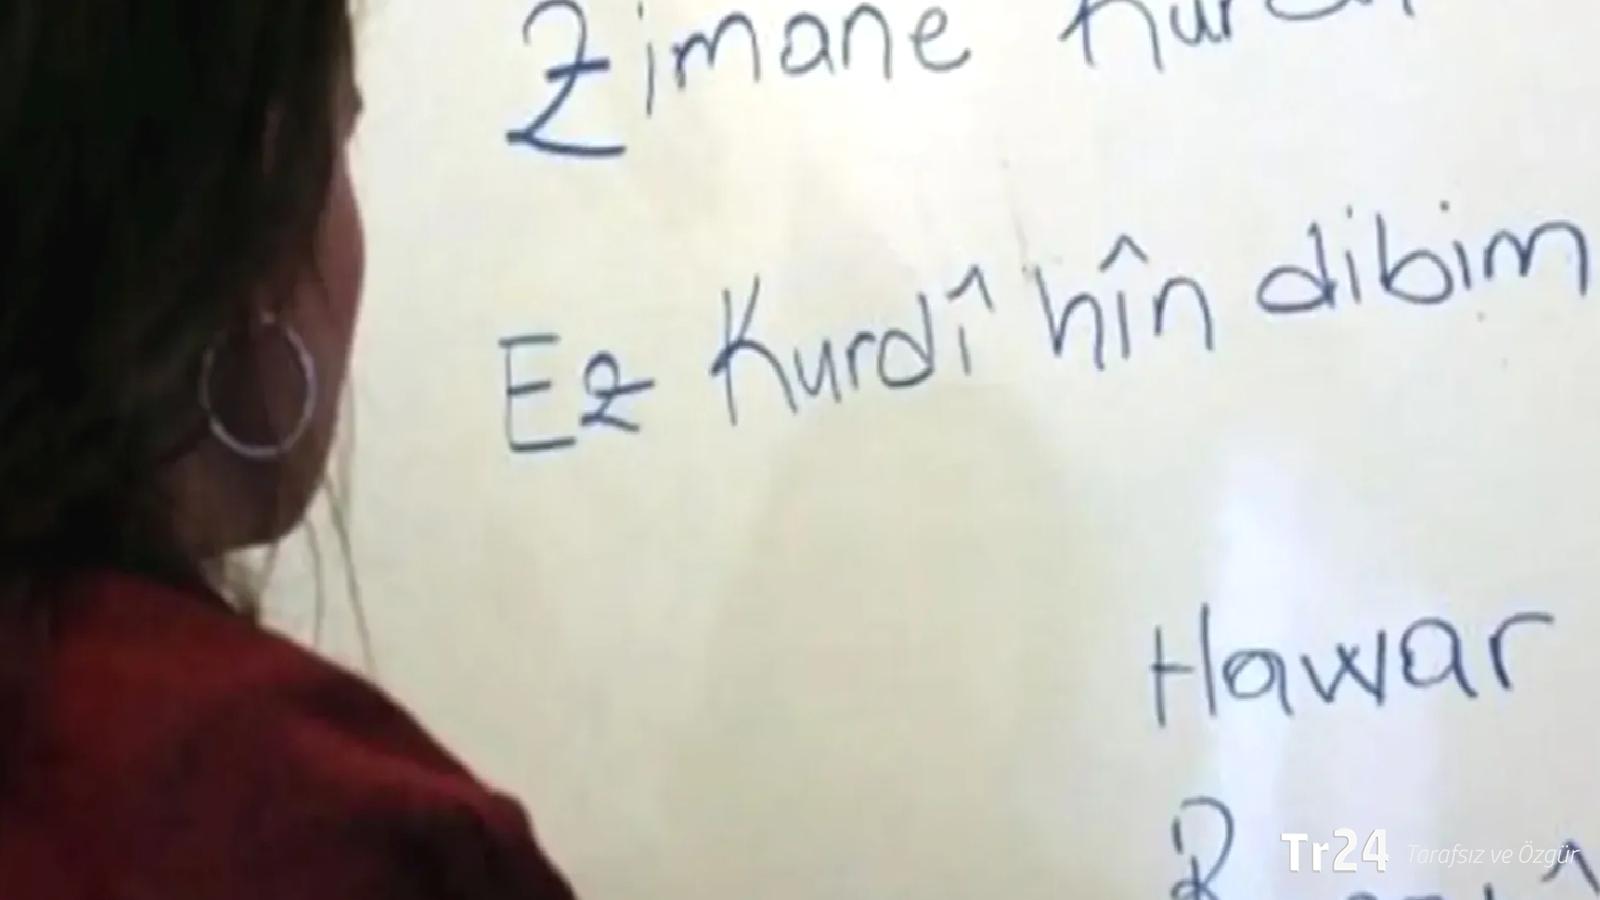 Zimane
Ez Kurdî hîn dibim
Hawar
Tr24 Tarafsız ve Özgür